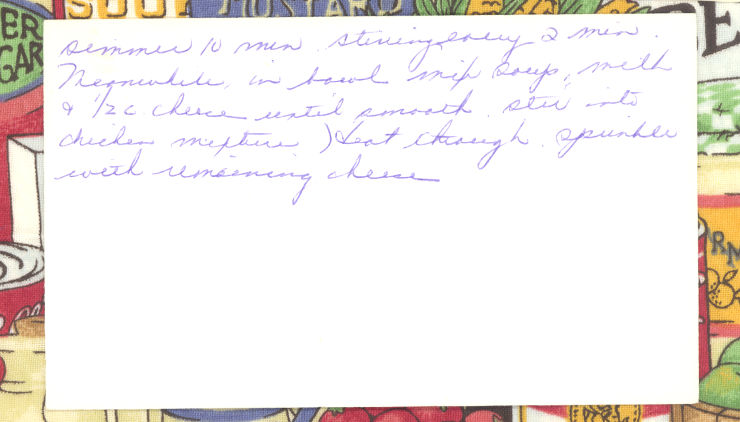 ER
GAR
SOUP
MUSTARD
E
simmer 10 min. stirring every 2 min.
Meanwhile, in bowl mix soup, milk
& 1/2 c cheese until smooth. stir into
chicken mixture. Heat through. sprinkle
with remaining cheese
RN